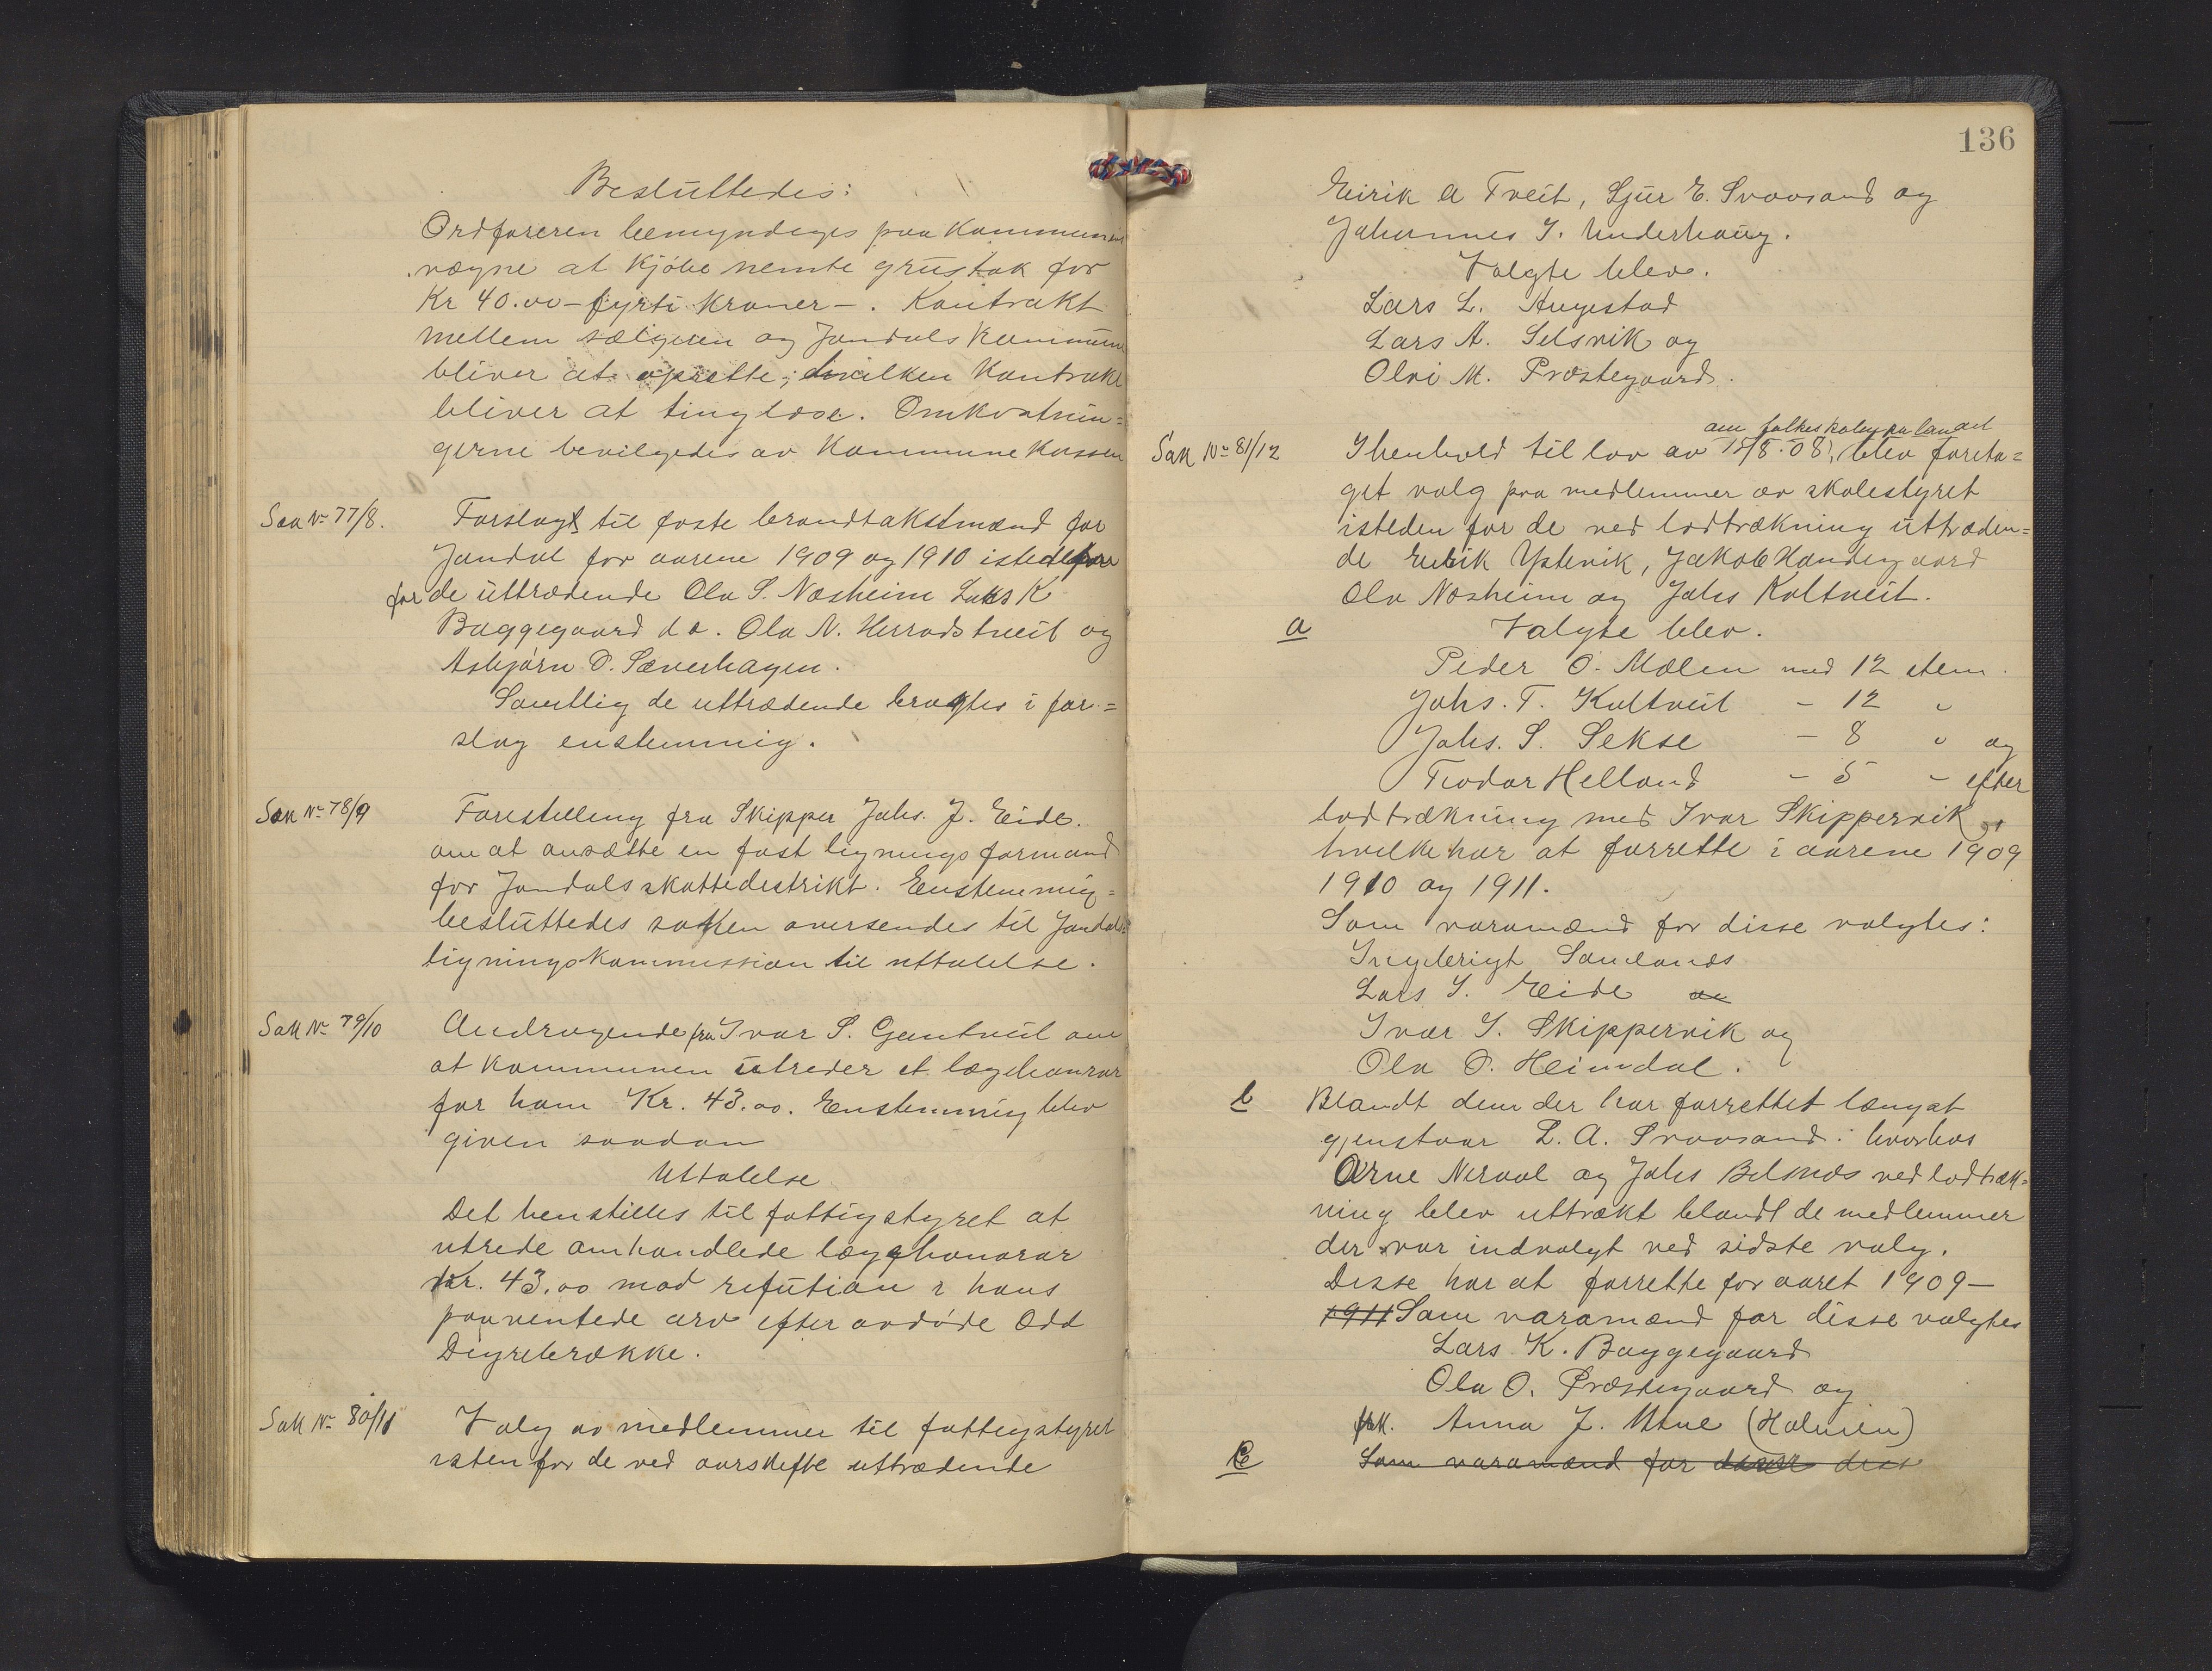 Besluttedes:
Ordføreren bemyndiges paa kommunens
vægne at kjøbe nemte grustak for
Kr 40.00 – fyrti kroner –. Kontrakt
mellem sælgeren og Jondals kommune
bliver at oprette; hvilken kontrakt
bliver at tinglæse. Omkostnin=
gerne bevilgedes av kommunekassen
Sak Nr 77/8.
Forslag til faste brandtakstmænd for
Jondal for aarene 1909 og 1910 istedet
for de uttrædende Ola S. Næsheim Lars K
Baggegaard d.o. Ola N. Herradstveit og
Asbjørn O. Sæverhagen.
Samtlig de uttrædende bragtes i for=
slag enstemmig.
Sak Nr 78/9
Forestilling fra Skipper Johs. J. Eide.
om at ansætte en fast ligningsformand
for Jondals skattedistrikt. Enstemmig=
besluttedes saken oversendes til Jondals
ligningskommission til uttalelse.
Sak Nr 79/10
Andragende fra Ivar S. Gjentveit om
at kommunen utreder et lægehonorar
for ham Kr. 43.00. Enstemmig blev
given saadan
Uttalelse
Det henstilles til fattigstyret at
utrede omhandlede lægehonorar
Kr. 43.00 mod refution i hans
paaventede arv efter avdøde Odd
Digrebrække.
Sak Nr 80/11
Valg av medlemmer til fattigstyret
isten for de ved aarskifte uttrædende
136
Eirik A Tveit, Sjur E. Svoasand og
Johannes J. Underhaug.
Valgte blev.
Lars L. Augestad
Lars A. Selsvik og
Olai M. Præstegaard.
om folkeskolen paa landet
Sak Nr 81/12
I henhold til lov av 15/8.08, blev foreta=
get valg paa medlemmer av skolestyret
isteden for de ved lodtrækning uttræden=
de Eirik Ystevik, Jakob Handegaard
Ola Næsheim og Johs Koltveit.
a
Valgte blev.
Peder O. Mælen med 12 stem.
Johs. T. Koltveit – 12 "
Johs. S. Sekse – 8 " og
Teodor Helland – 5 – efter
lodtrækning med Ivar Skippervik
hvilke har at forrette i aarene 1909
1910 og 1911.
Som varamænd for disse valgtes:
Ingebrigt Samlands
Lars S. Eide og
Ivar J. Skippervik og
Ola O. Heimdal.
b
Blandt dem der har forrettet længst
gjenstaar L. A. Svoasand: hvorhos
Arne Neraal og Johs Belsnæs ved lodtræk=
ning blev uttrækt blandt de medlemmer
der var indvalgt ved sidste valg.
Disse har at forrette for aaret 1909 –
1911 Som varamænd for disse valgtes
Lars K. Baggegaard
Ola O. Præstegaard og
frk. Anna J. Utne (Holmen)
c
Som varamænd for disse